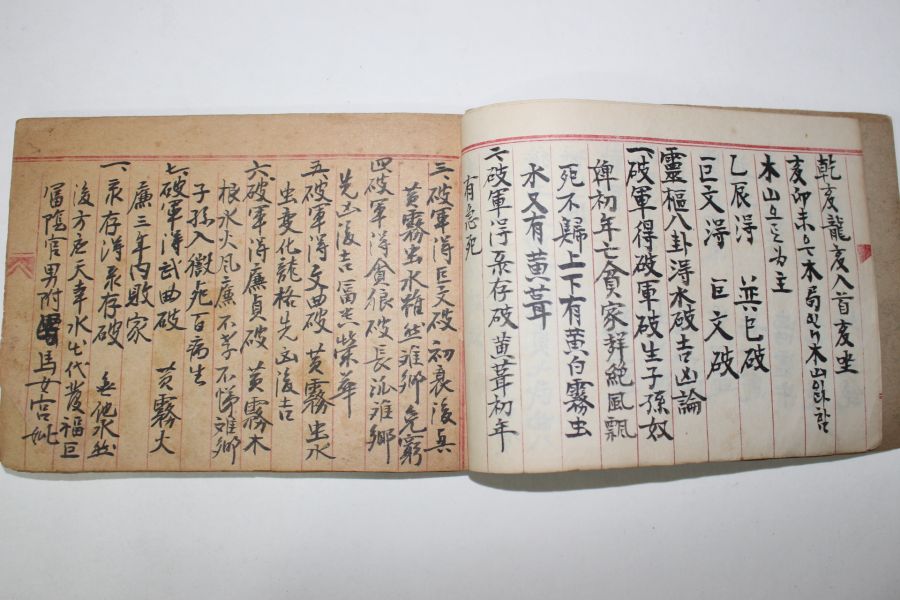 乾亥龍亥入首亥坐
亥卯未은木局인니木山이라함
木山으로為主
乙辰得 巽巳破
巨文得 巨文破
靈樞八卦得水破吉凶論
一破軍得破軍破生子孫奴
婢初年亡貧家鮮絶風飄
死不歸上下有黃白霧虫
水又有黃茸
二破軍得录存破黃茸初年
有急死
三破軍得巨文破 初衰後興
黃霧虫水雜 離鄉免窮
四破軍得貪狼破 長派離鄉
先凶後吉富貴榮華
五破軍得文曲破 黃霧虫水
虫變化龍格先凶後吉
六破軍得廉貞破 黃霧木
根水火風廉不孝不悌离鄉
子孫入獄死百病生
七破軍得武曲破 黃霧火
廉三年內敗家
一录存得录存破 無他水
後方庶天幸水七代發福巨
富蔭官男附馬女宮